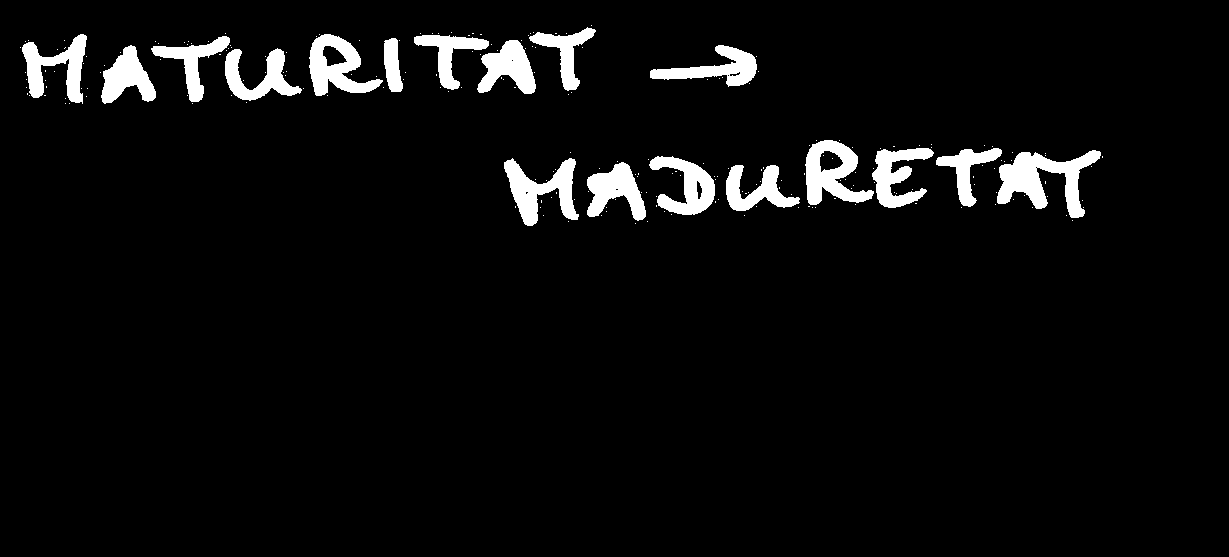 MATURITAT →
MADURETAT